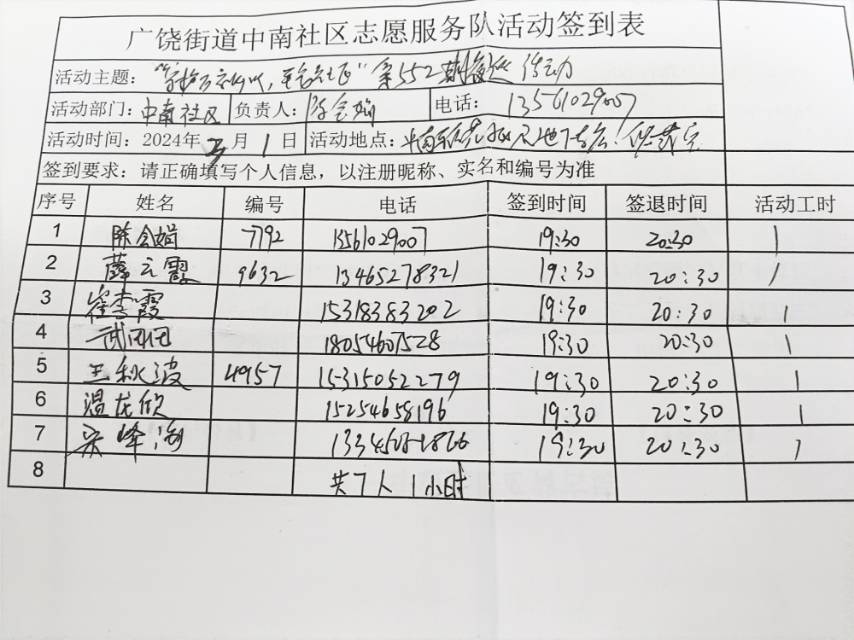 广饶街道中南社区志愿服务队活动签到表
活动主题: 第552期 活动
活动部门: 中南社区 负责人: 陈会娟 电话: 13561029007
活动时间: 2024年 3月 1日 活动地点:
签到要求: 请正确填写个人信息，以注册昵称、实名和编号为准
序号 姓名 编号 电话 签到时间 签退时间 活动工时
1 陈会娟 7792 13561029007 19:30 20:30 1
2 薛云霞 9632 13465278321 19:30 20:30 1
3 崔李霞 15318383202 19:30 20:30 1
4 武团团 18054607528 19:30 20:30 1
5 王秋波 4957 15315052279 19:30 20:30 1
6 温龙欣 15254658196 19:30 20:30 1
7 宋峰海 19:30 20:30 1
8 共7人 1小时